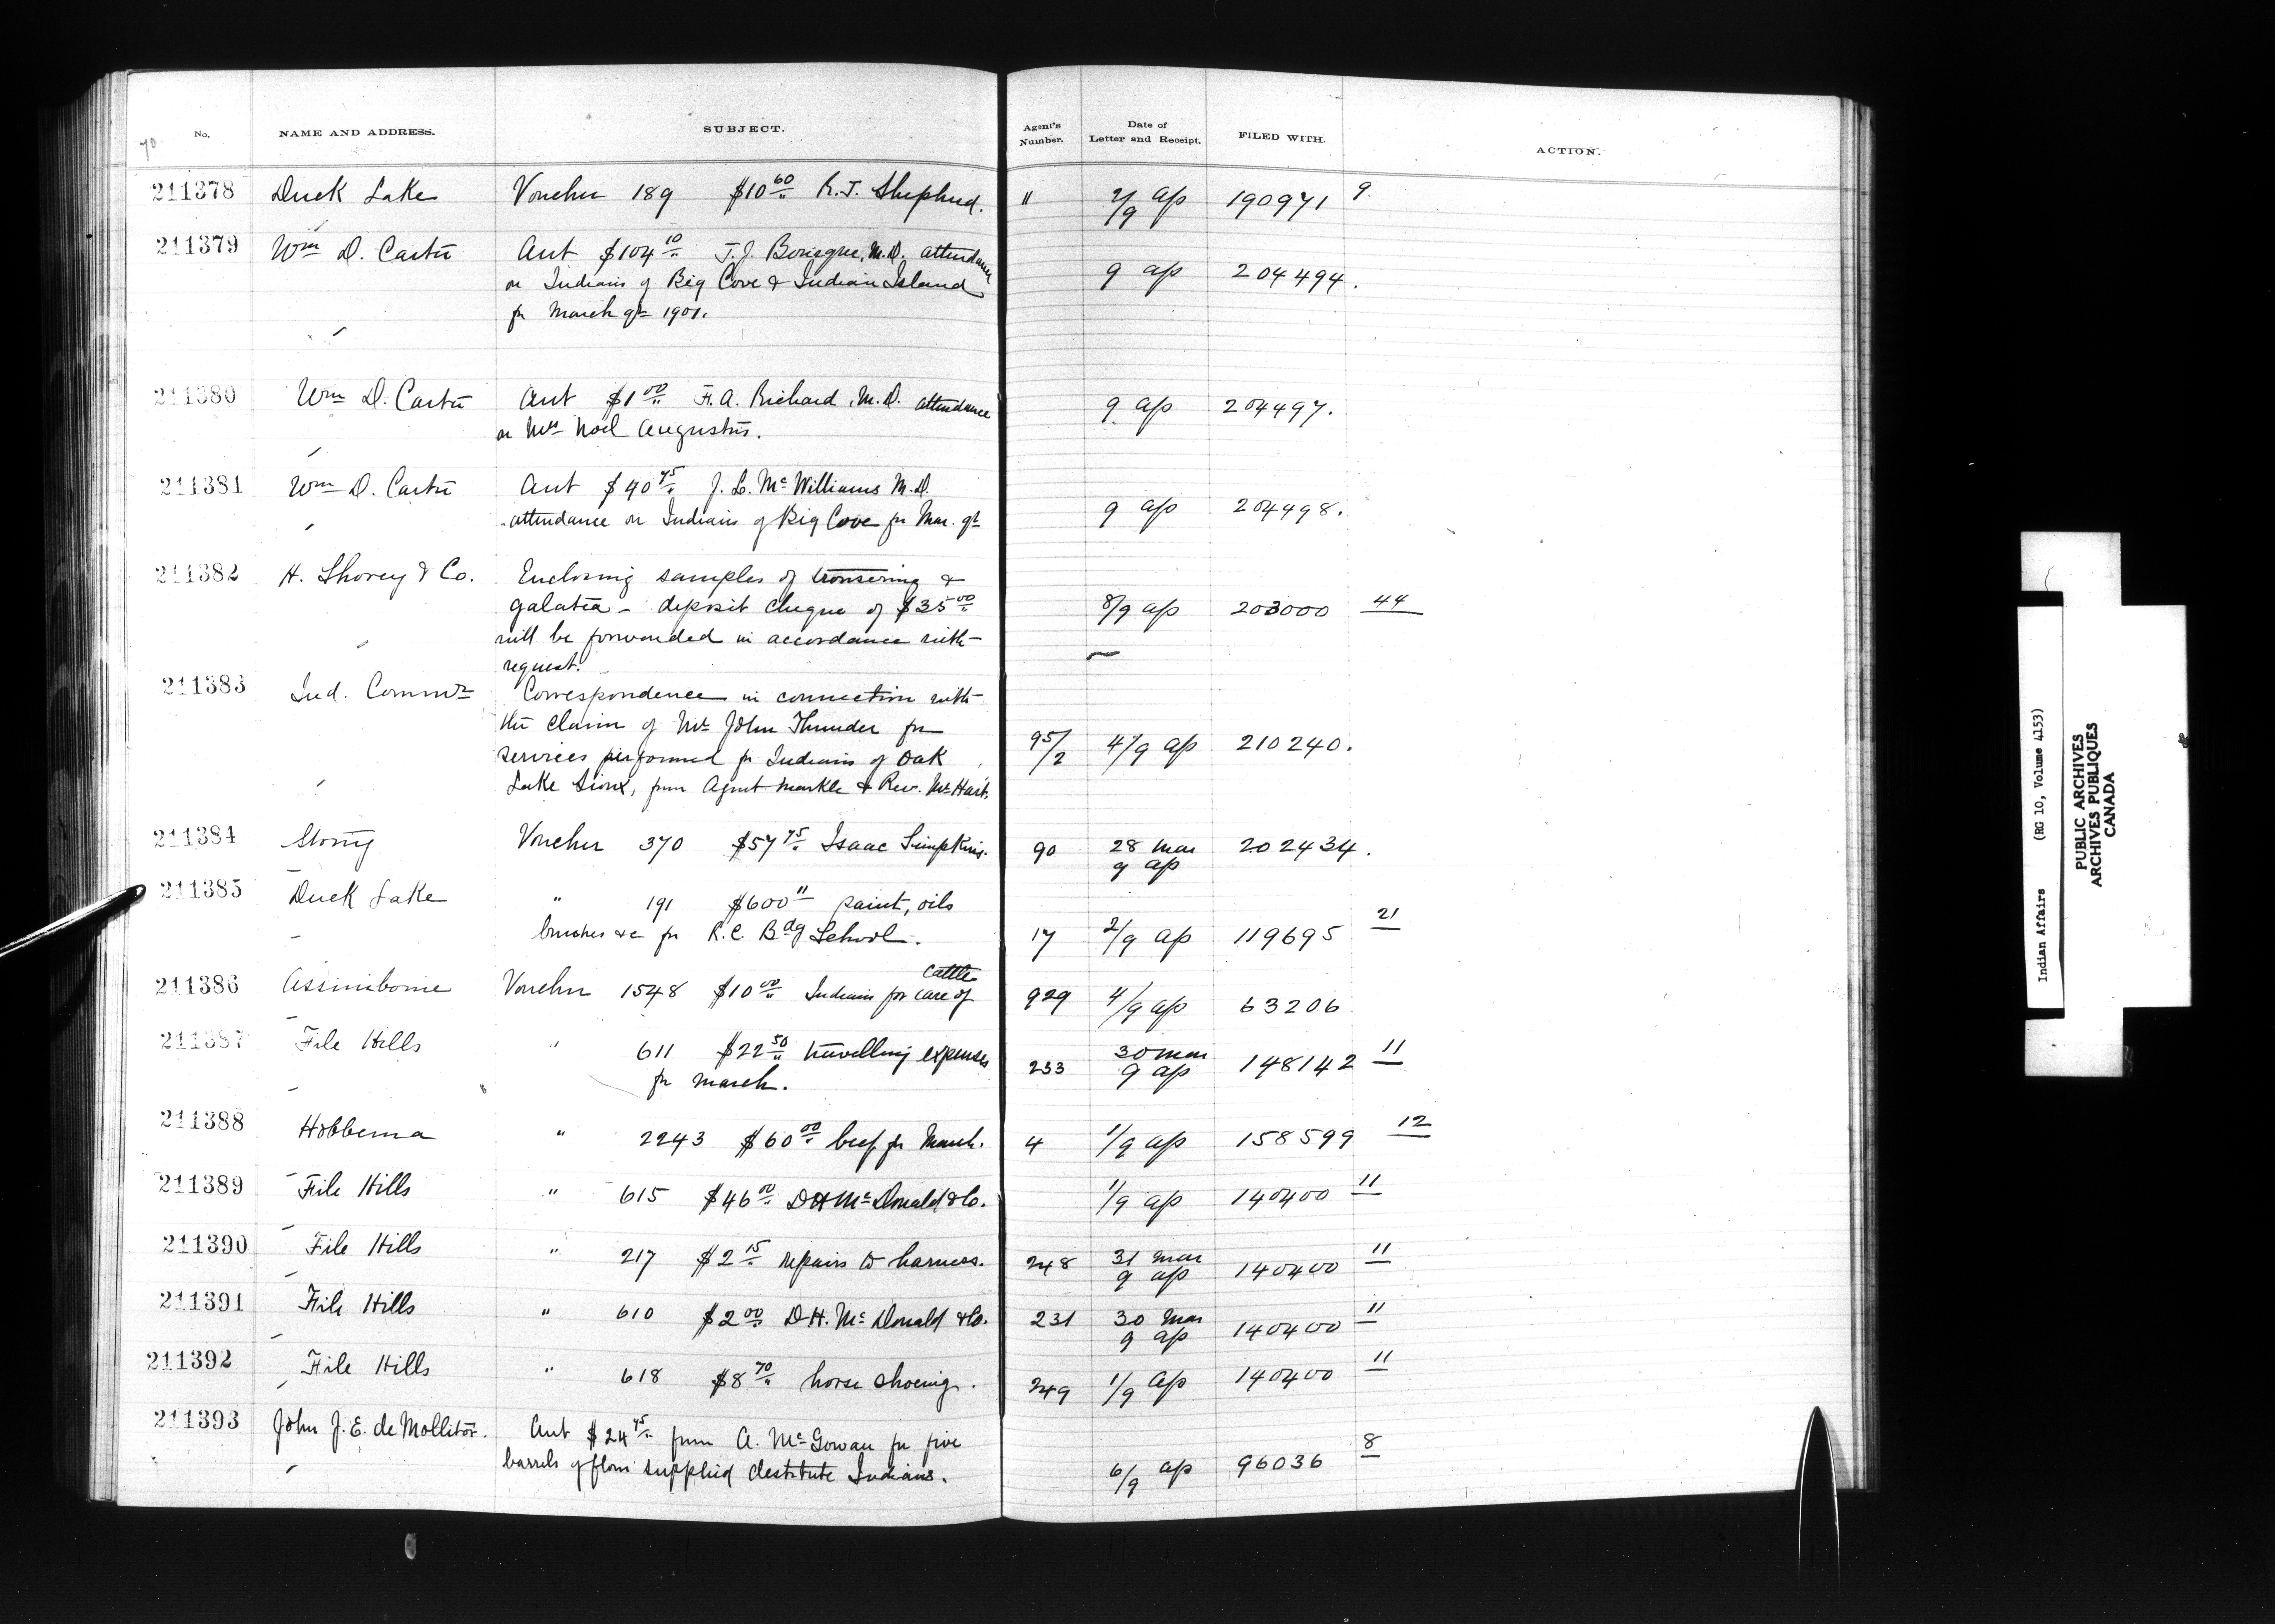 70 No. NAME AND ADDRESS. SUBJECT. Agent's Number. Date of Letter and Receipt. FILED WITH. ACTION.
211378 Duck Lake Voucher 189 $10 60/" R.J. Shepherd. " 2/9 ap 190971 9.
211379 Wm D. Carter Acct $104 10/" T.J. M.D. attendance
on Indians of Big Cove & Indian Island 9 ap 204494.
for March qr 1901.
211380 Wm D. Carter Acct $1 00/" F.A. Richard, M.D. attendance 9 ap 204497.
on Mrs Noel Augustus.
211381 Wm D. Carter Acct $40 75/" J.L. McWilliams M.D.
attendance on Indians of Big Cove for Mar. qr 9 ap 204498.
211382 H. Shorey & Co. Enclosing samples of trousering &
galatea - deposit cheque of $35 00/" 8/9 ap 203000 44
will be forwarded in accordance with
request.
211383 Ind. Commr Correspondence in connection with
the claim of Mr John Thunder for
services performed for Indians of Oak 95/2 4/9 ap 210240.
Lake Sioux, from Agent Markle & Rev. Mr Hart.
211384 Stony Voucher 370 $57 75/" Isaac Simpkins. 90 28 Mar 9 ap 202434.
211385 Duck Lake " 191 $600 " paint, oils
brushes &c for R.C. Bdg School. 17 2/9 ap 119695 21
211386 Assiniboine Voucher 1548 $10 00/" Indians for care of cattle 929 4/9 ap 63206
211387 File Hills " 611 $22 50/" travelling expenses
for March. 233 30 mar 9 ap 148142 11
211388 Hobbema " 2243 $60 00/" beef for March. 4 1/9 ap 158599 12
211389 File Hills " 615 $46 00/" D H McDonald & Co. 1/9 ap 140400 11
211390 File Hills " 217 $2 15/" repairs to harness. 248 31 mar 9 ap 140400 11
211391 File Hills " 610 $2 00/" D.H. McDonald & Co. 231 30 mar 9 ap 140400 11
211392 File Hills " 618 $8 70/" horse shoeing. 249 1/9 ap 140400 11
211393 John J.E. de Mollitor. Acct $24 75/" from A. McGowan for five
barrels of flour supplied destitute Indians. 6/9 ap 96036 8
Indian Affairs (RG 10, Volume 4153)
PUBLIC ARCHIVES
ARCHIVES PUBLIQUES
CANADA